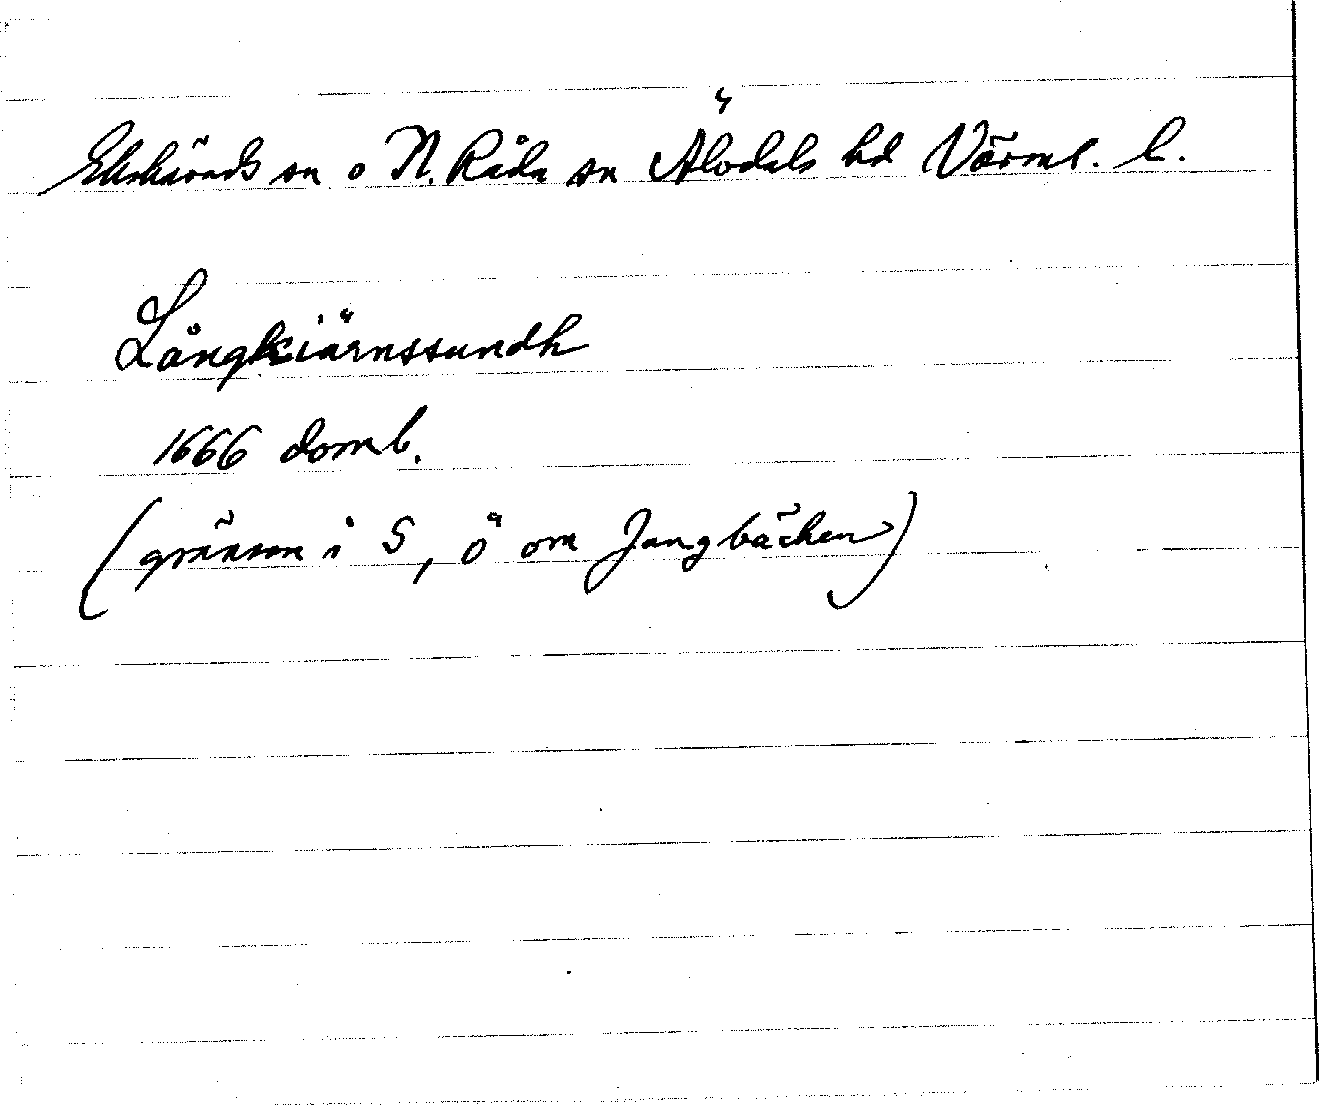 Ekshärads sn o N. Råda sn Älvdals hd Värml. l.
Långkiärnssundh
1666 domb.
(gränsen i S, ö om Jangbäcken)